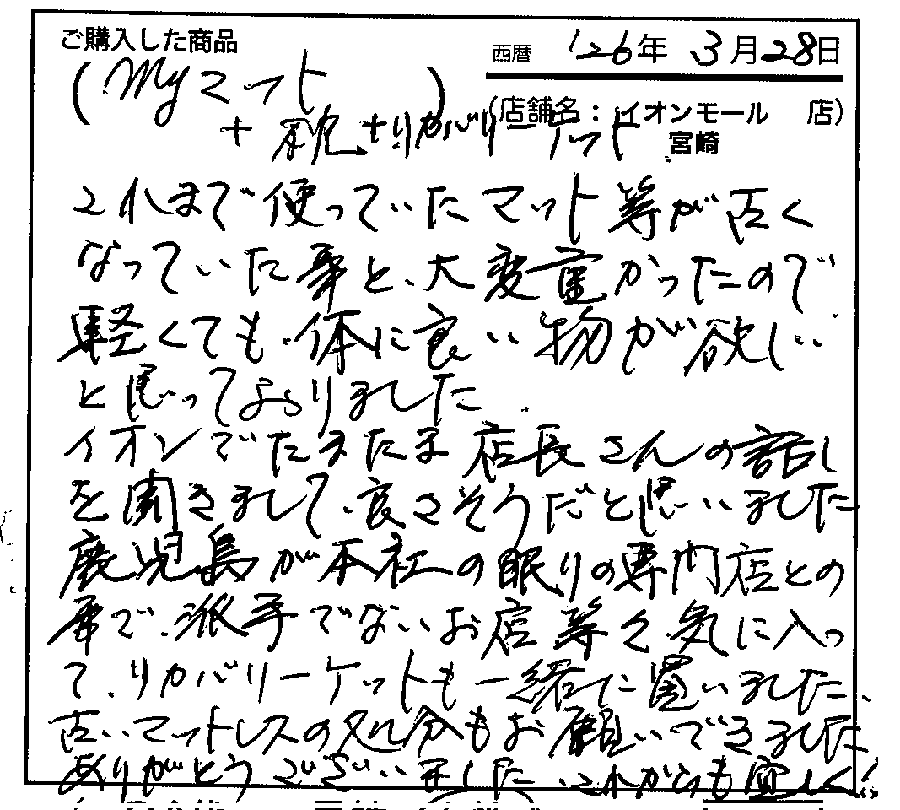 ご購入した商品
西暦 '26年 3月28日
(Myマット)
(店舗名：イオンモール 店)
宮崎
+ 枕+リカバリーケット
これまで使っていたマット等が古く
なっていた事と、大変重かったので
軽くても、体に良い物が欲しい
と思っておりました。
イオンでたまたま店長さんの話し
を聞きまして、良さそうだと思いました
鹿児島が本社の眠りの専門店との
事で、派手でないお店等々、気に入っ
て、リカバリーケットも一緒に買いました、
古いマットレスの処分もお願いできました
ありがとうございました これからも宜しく!!